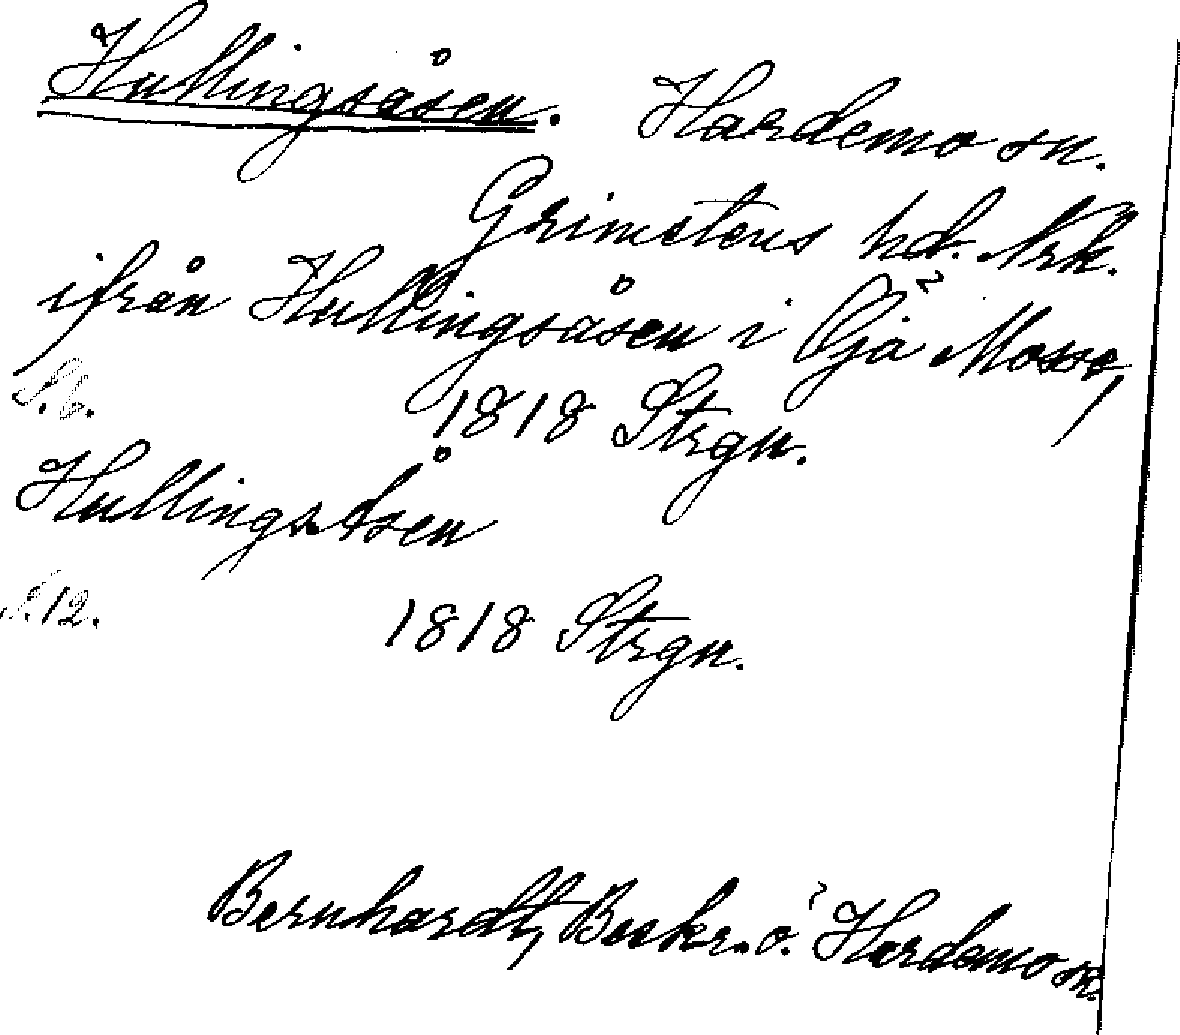 Hullingsåsen. Hardemo sn.
Grimstens hd. Nrk.
ifrån Hullingsåsen i Öjå Mosse,
S. 6. 1818 Strgn.
Hullingsåsen
S. 12. 1818 Strgn.
Bernhardt, Beskr. ö. Hardemo sn.